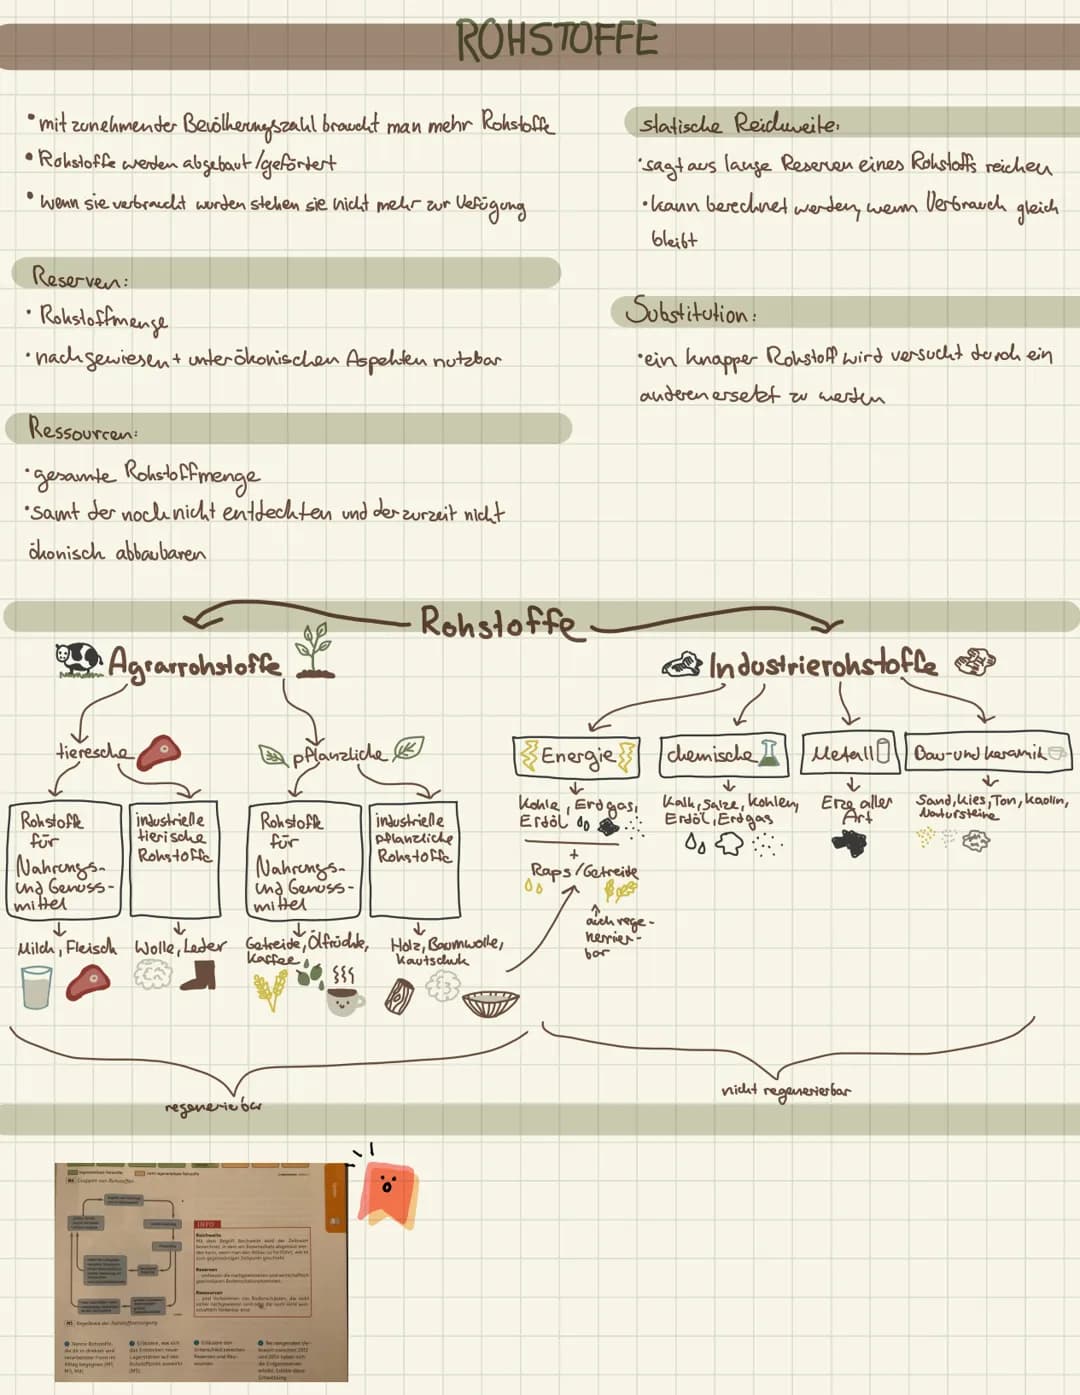 ROHSTOFFE
• mit zunehmender Bevölkerungszahl braucht man mehr Rohstoffe
• Rohstoffe werden abgebaut/gefördert
• wenn sie verbraucht wurden stehen sie nicht mehr zur Vefügung
Reserven:
• Rohstoffmenge
• nachgewiesen + unter ökonischen Aspekten nutzbar
Ressourcen:
• gesamte Rohstoffmenge
• samt der noch nicht entdeckten und der zurzeit nicht
ökonisch abbaubaren
statische Reichweite:
• sagt aus lange Reserven eines Rohstoffs reichen
• kann berechnet werden, wenn Verbrauch gleich
bleibt
Substitution:
• ein knapper Rohstoff wird versucht durch ein
anderen ersetzt zu werden
Rohstoffe
Agrarrohstoffe
Industrierohstoffe
tieresche
pflanzliche
Energie
chemische
Metall
Bau- und Keramik
Rohstoffe
für
Nahrungs-
und Genuss-
mittel
industrielle
tierische
Rohstoffe
Rohstoffe
für
Nahrungs-
und Genuss-
mittel
industrielle
pflanzliche
Rohstoffe
Kohle, Erdgas,
Erdöl
+
Raps/Getreide
auch rege-
nerrier-
bar
Kalk, Salze, Kohlen,
Erdöl, Erdgas
Erze aller
Art
Sand, Kies, Ton, Kaolin,
Natursteine
Milch, Fleisch
Wolle, Leder
Getreide, Ölfrüchte,
Kaffee
Holz, Baumwolle,
Kautschuk
regenerierbar
nicht regenerierbar
INFO
Reichweite
Reserven
Ressourcen